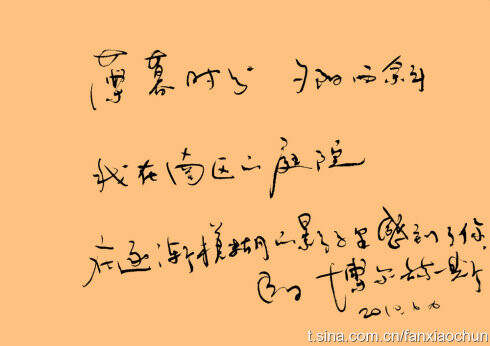 薄暮时分 夕阳西斜
我在南区的庭院
在逐渐模糊的影子里感到了你
博尔赫斯
2010.6.6
t.sina.com.cn/fanxiaochun